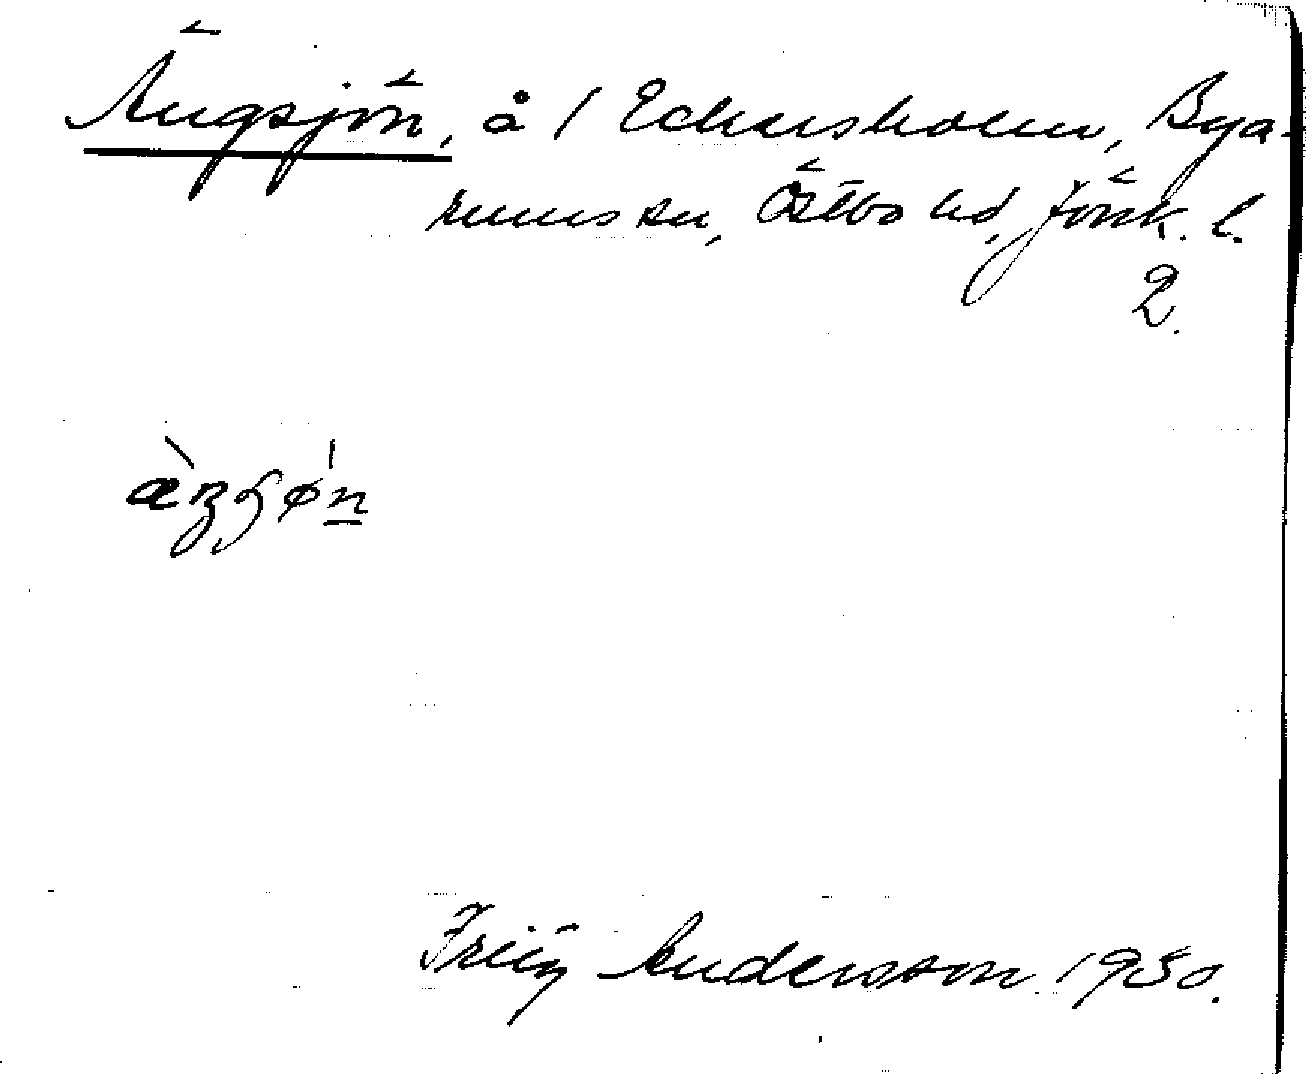 Ängsjön, å 1 Eckersholm, Bya-
rums sn, Östbo hd, Jönk. l.
2.
Fritz Andersson 1930.